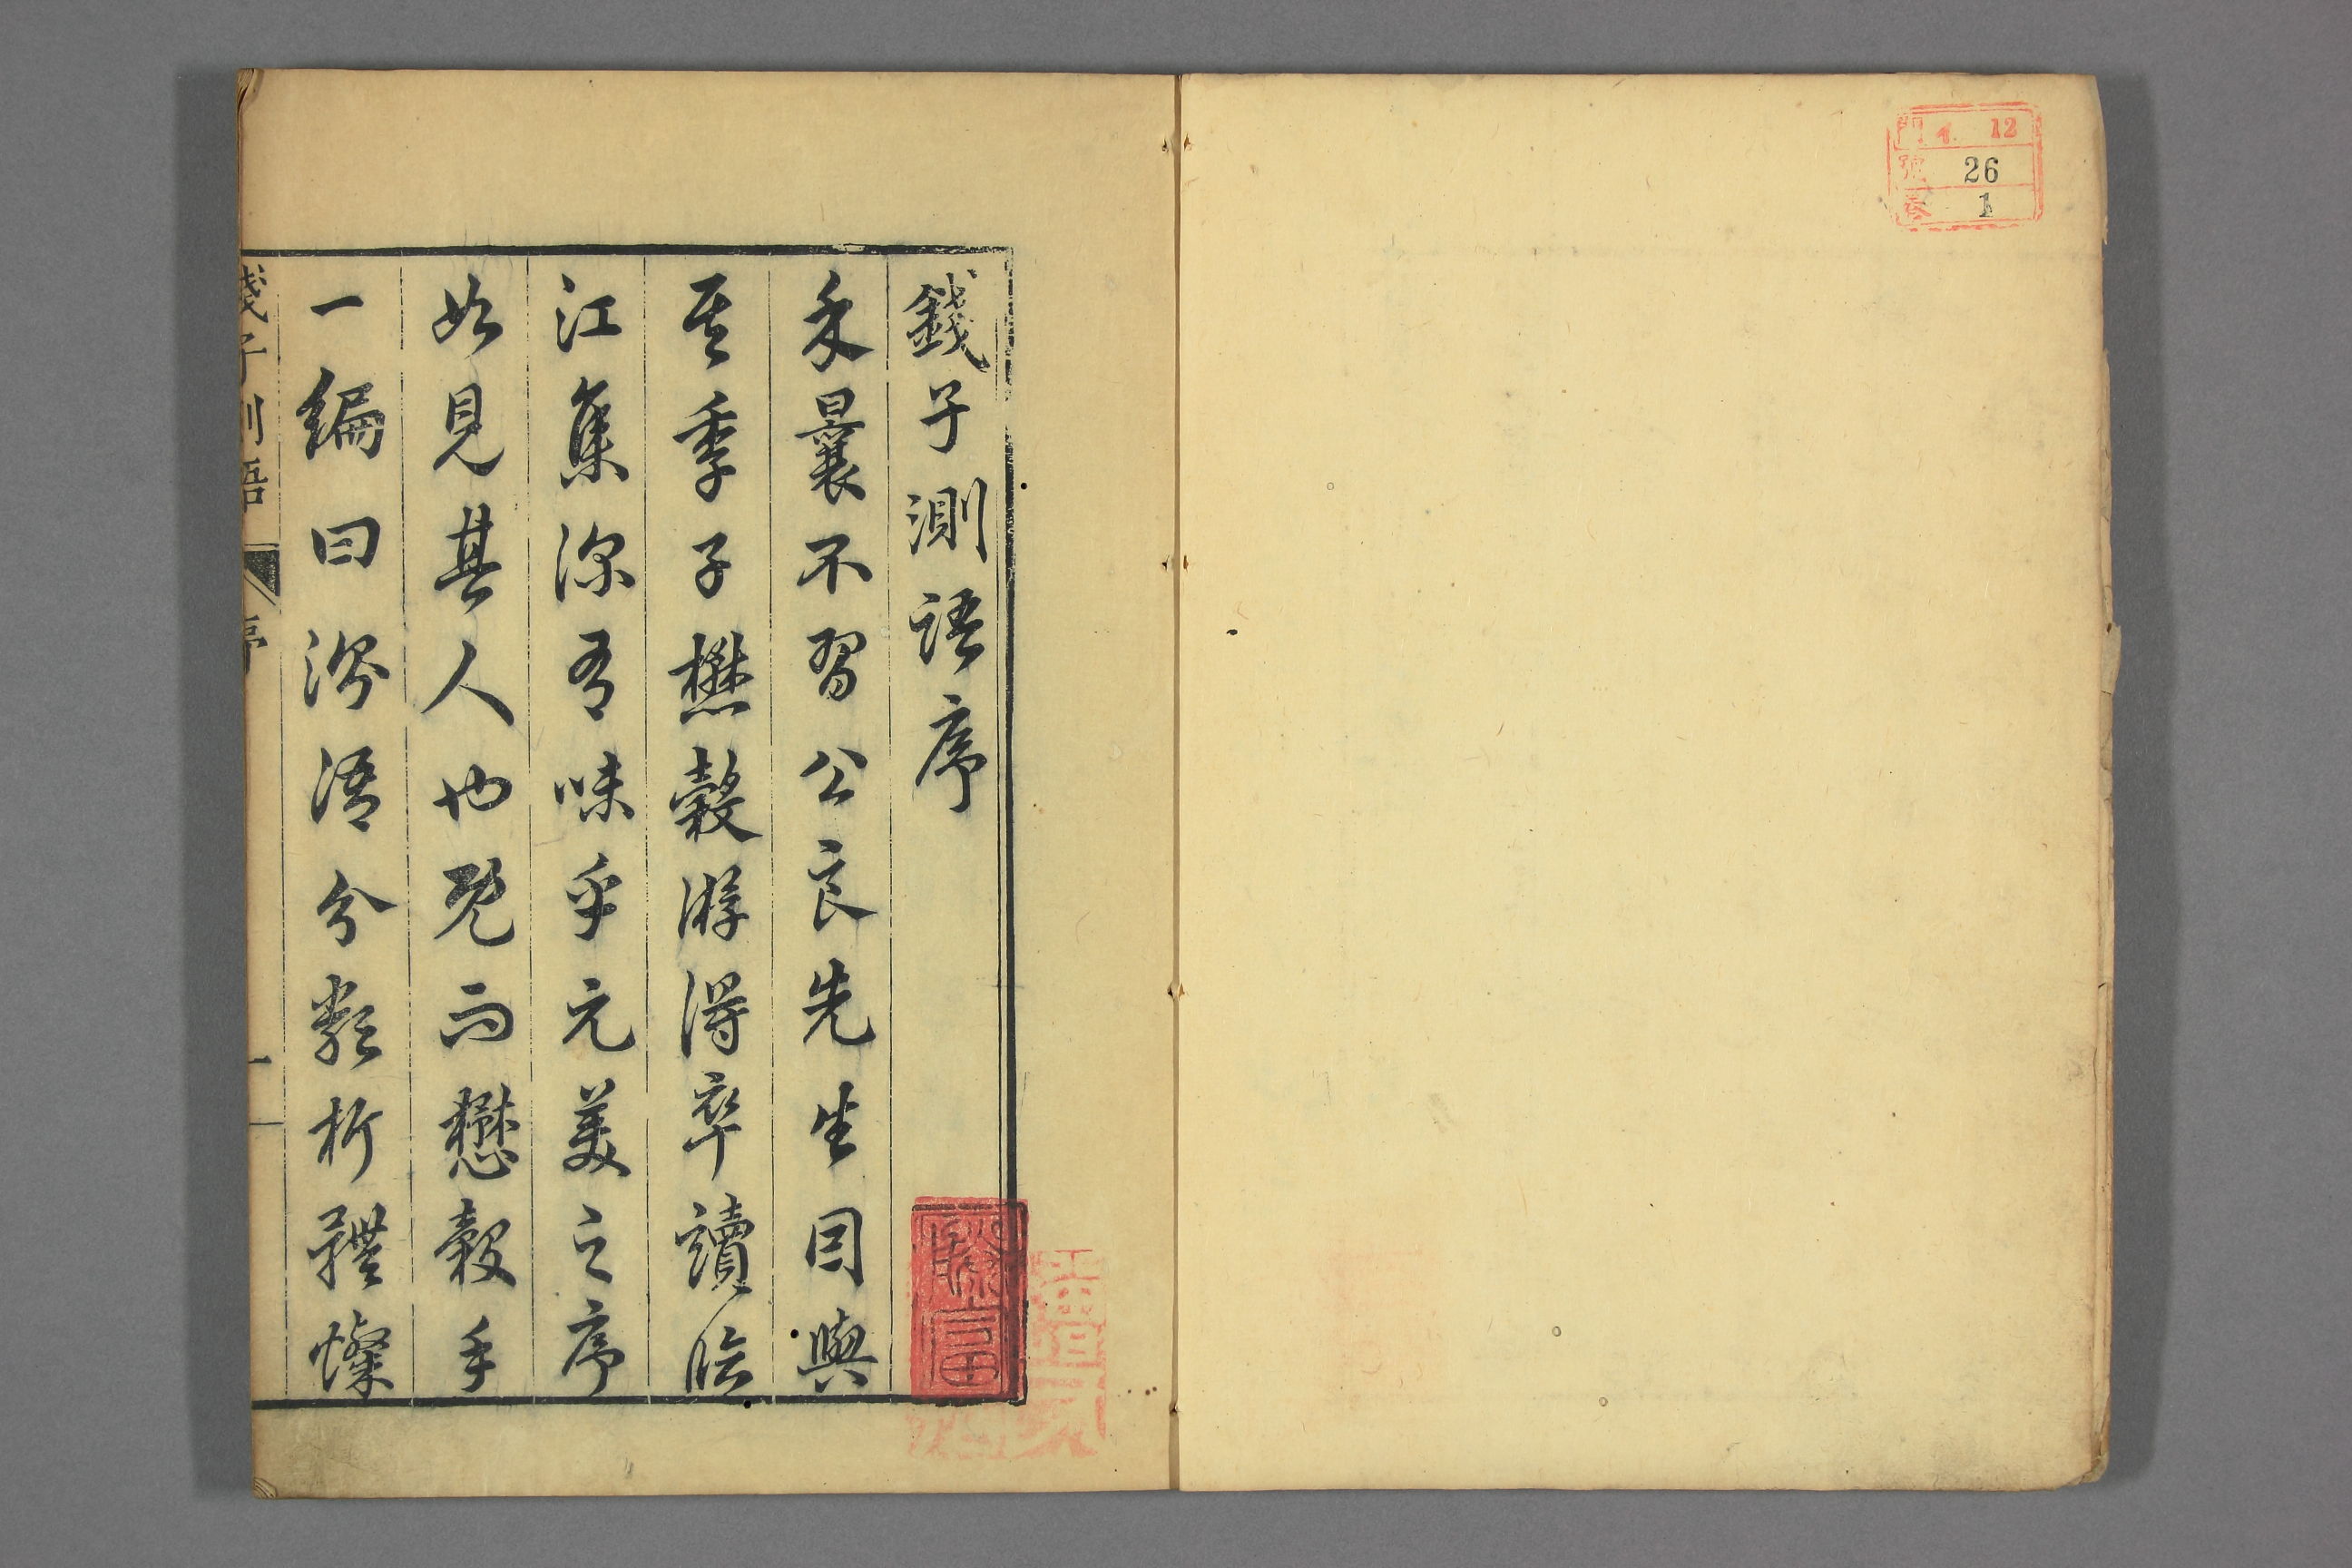 門 イ 12
號 26
卷 1
錢子測語序
禾曩不習公良先生因與
其季子懋穀游得卒讀臨
江集深有味乎元美之序
如見其人也既而懋穀手
一編曰測語分類析體燦
錢子測語 序 一